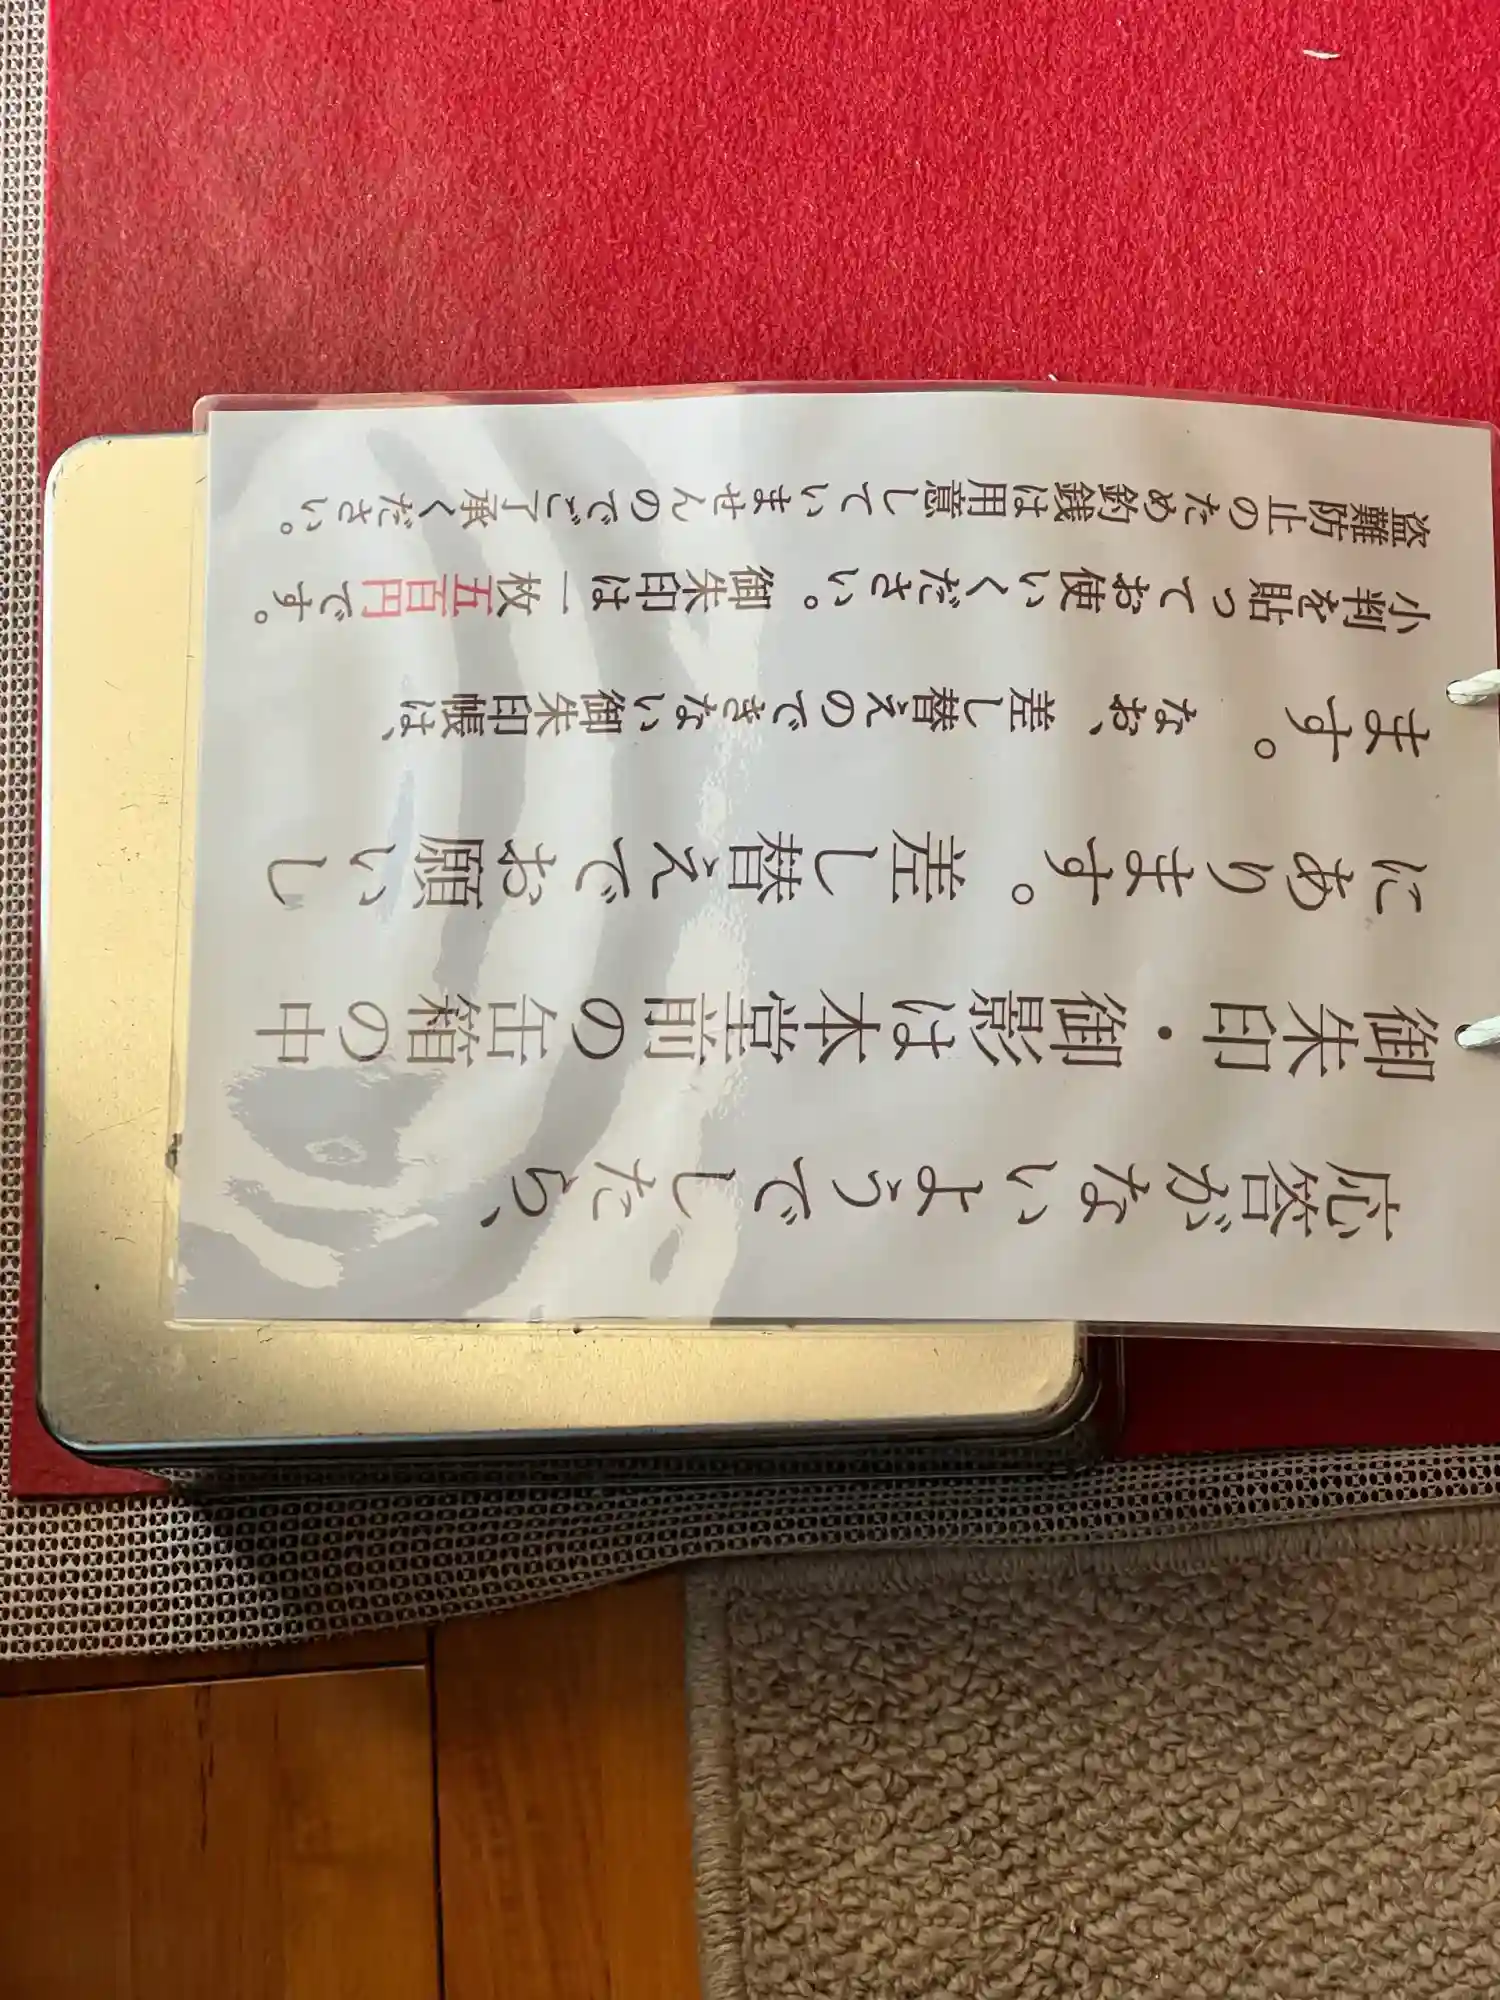 応答がないようでしたら、
御朱印・御影は本堂前の缶箱の中
にあります。差し替えでお願いし
ます。なお、差し替えのできない御朱印帳は、
小判を貼ってお使いください。御朱印は一枚五百円です。
盗難防止のため釣銭は用意していませんのでご了承ください。